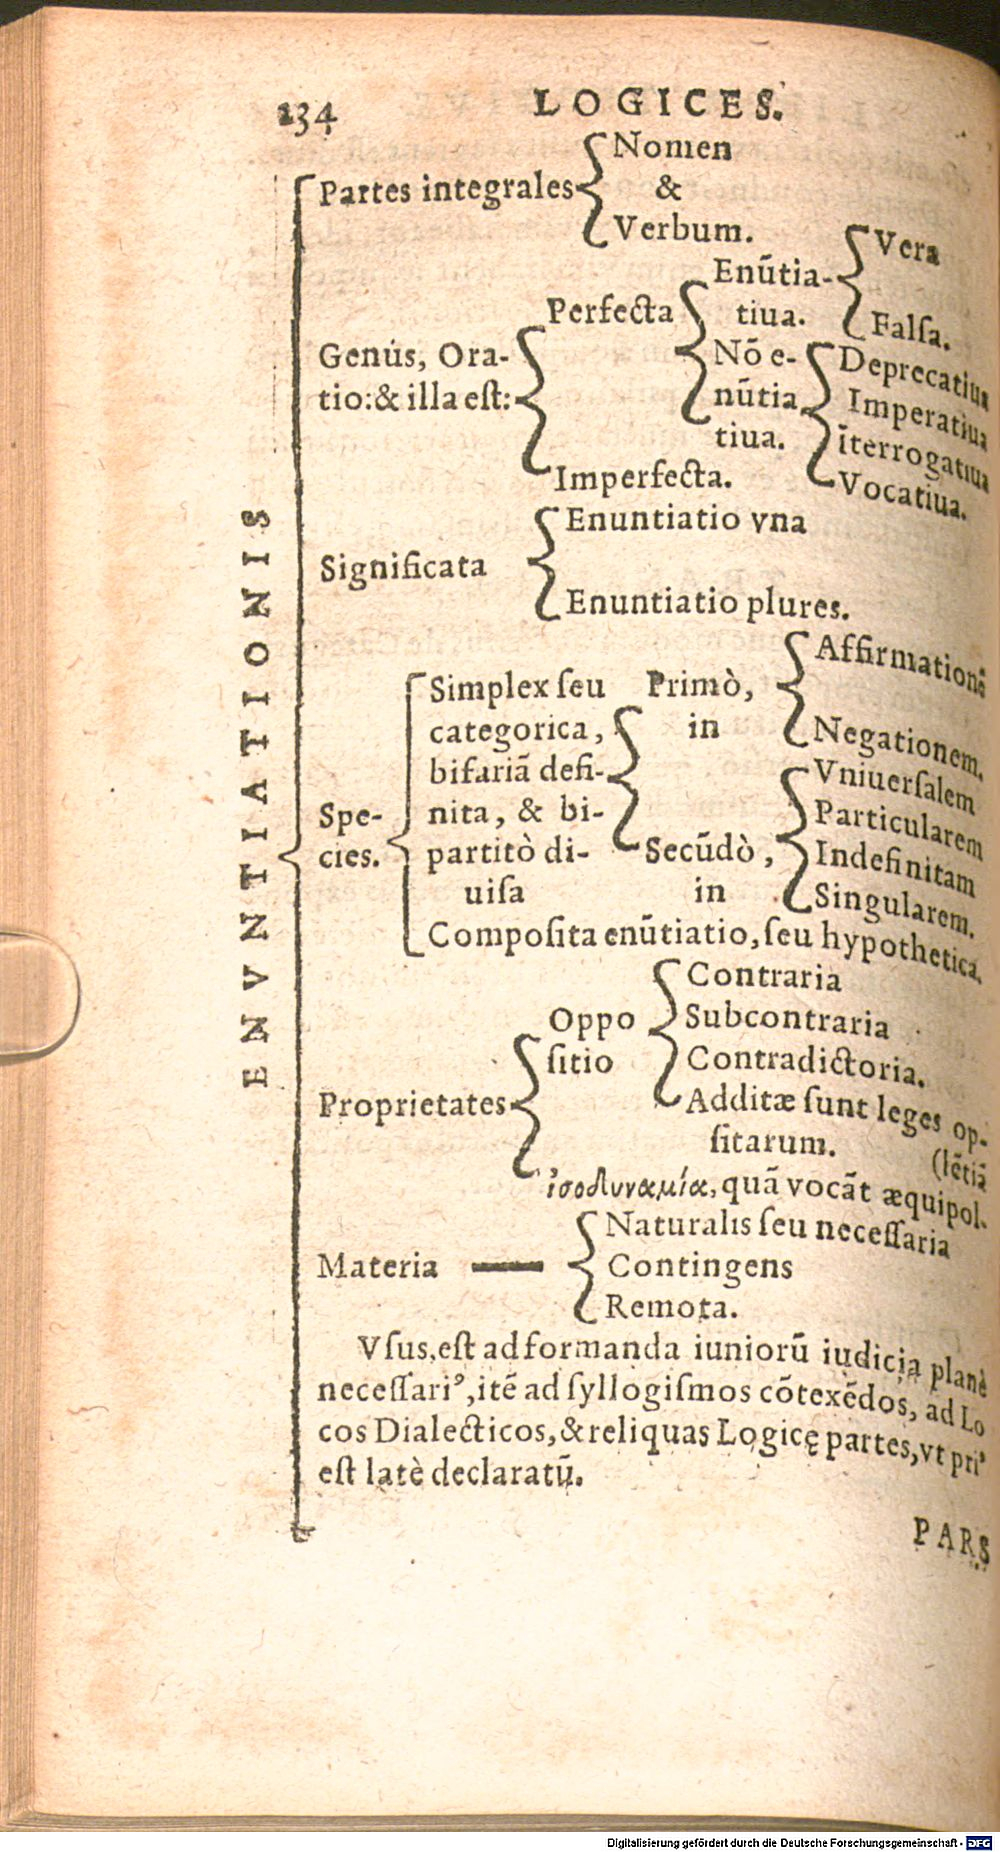 134 LOGICES.
ENVNTIATIONIS
Partes integrales
Nomen
&
Verbum.
Genús, Ora-
tio:& illa eſt:
Perfecta
Enũtia-
tiua.
Vera
Falſa.
Nõ e-
nũtia
tiua.
Deprecatiua
Imperatiua
ĩterrogatiua
Vocatiua.
Imperfecta.
Significata
Enuntiatio vna
Enuntiatio plures.
Spe-
cies.
Simplex ſeu
categorica,
bifariã defi-
nita, & bi-
partitò di-
uiſa
Primò,
in
Affirmationẽ
Negationem.
Secũdò,
in
Vniuerſalem
Particularem
Indefinitam
Singularem.
Compoſita enũtiatio, ſeu hypothetica.
Proprietates
Oppo
ſitio
Contraria
Subcontraria
Contradictoria.
Additæ ſunt leges op-
ſitarum.
(lẽtiã
ἰσοδυναμία, quã vocãt æquipol-
Materia
Naturalis ſeu neceſſaria
Contingens
Remota.
Vſus, eſt ad formanda iuniorũ iudicia planè
neceſſariꝰ, itẽ ad ſyllogiſmos cõtexẽdos, ad Lo
cos Dialecticos, & reliquas Logicę partes, vt priꝰ
eſt latè declaratũ.
PARS
Digitalisierung gefördert durch die Deutsche Forschungsgemeinschaft - DFG